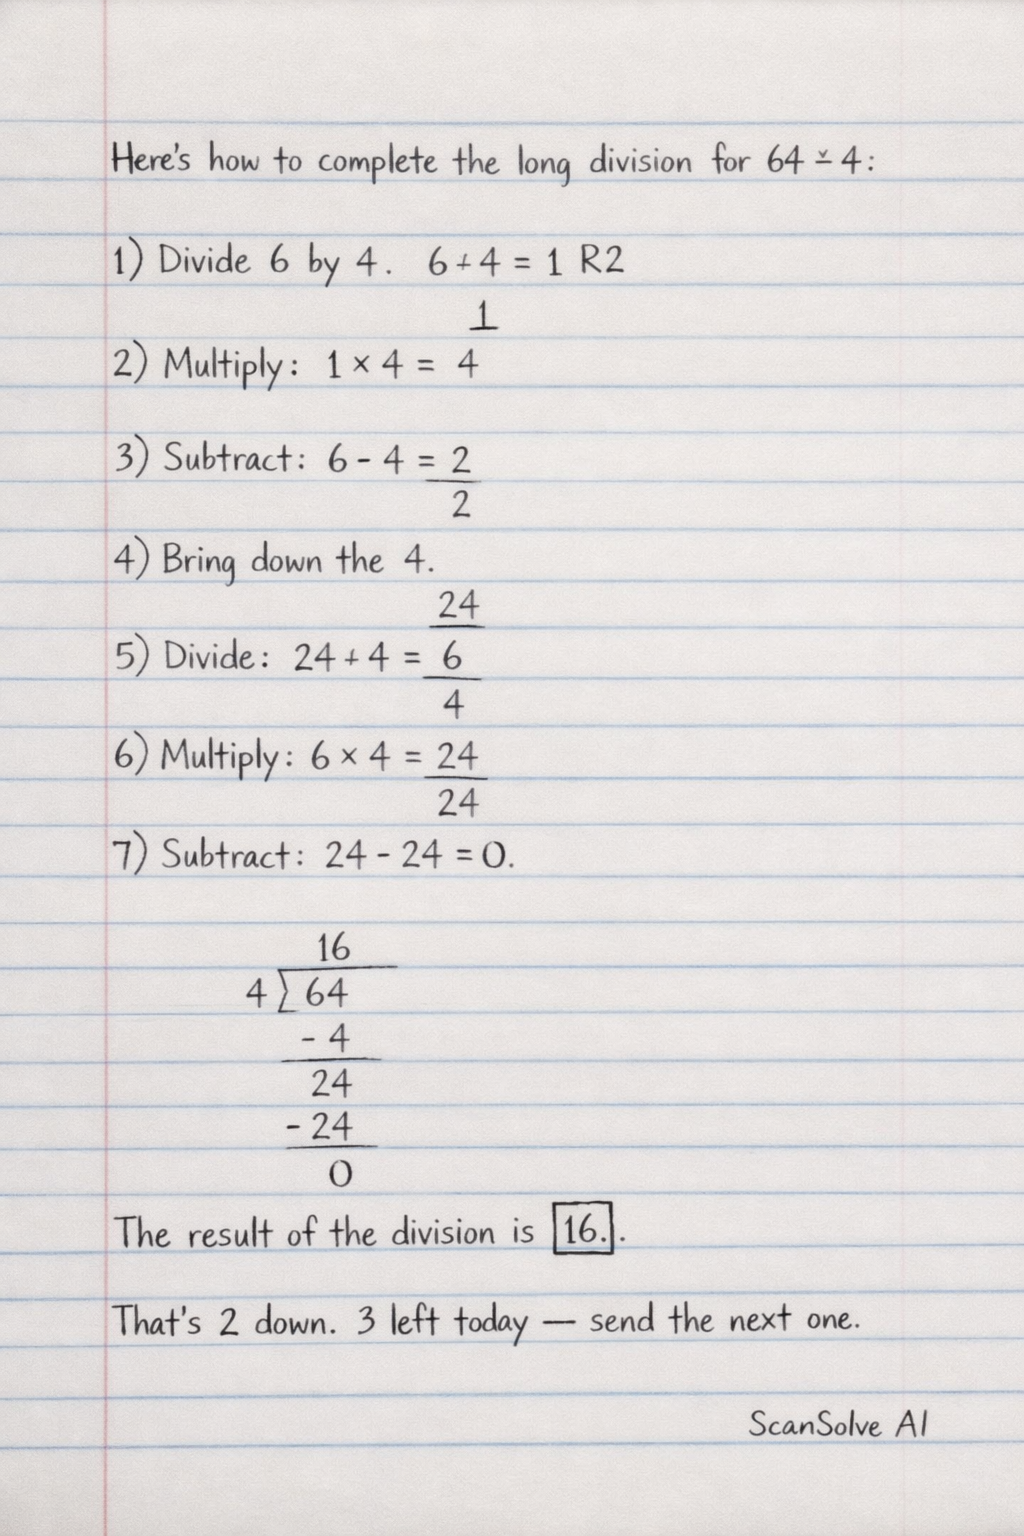 Here's how to complete the long division for 64 ÷ 4:
1) Divide 6 by 4. 6 + 4 = 1 R2
1
2) Multiply: 1 × 4 = 4
3) Subtract: 6 - 4 = 2
2
4) Bring down the 4.
24
5) Divide: 24 + 4 = 6
4
6) Multiply: 6 × 4 = 24
24
7) Subtract: 24 - 24 = 0.
16
4 ) 64
- 4
24
- 24
0
The result of the division is 16..
That's 2 down. 3 left today — send the next one.
ScanSolve AI